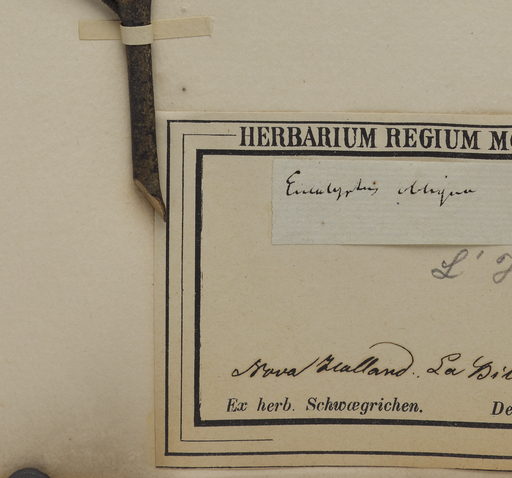 HERBARIUM REGIUM MO
Eucalyptus obliqua
L'
Nova Holland. La Bil
Ex herb. Schwægrichen. De